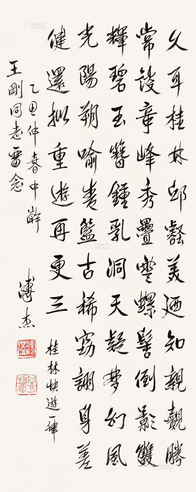 久耳桂林邱壑美迺知親覩勝
常談奇峰秀疊螺髻倒影雙
輝碧玉簪鍾乳洞天疑夢幻風
光陽朔喻藍古稀竊詡身差
健還擬重遊再更三
桂林快遊一律
乙丑仲春中澣
溥杰
王剛同志留念